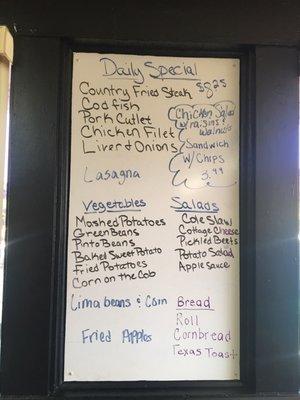 Daily Special
Country Fried Steak $8.25
Cod fish
Pork Cutlet
Chicken Filet
Liver & Onions
Lasagna
Chicken Salad
w/raisins &
Walnuts
Sandwich
w/ Chips
5.99
Vegetables
Mashed Potatoes
Green Beans
Pinto Beans
Baked Sweet Potato
Fried Potatoes
Corn on the Cob
Lima beans & Corn
Fried Apples
Salads
Cole Slaw
Cottage Cheese
Pickled Beets
Potato Salad
Apple Sauce
Bread
Roll
Cornbread
Texas Toast